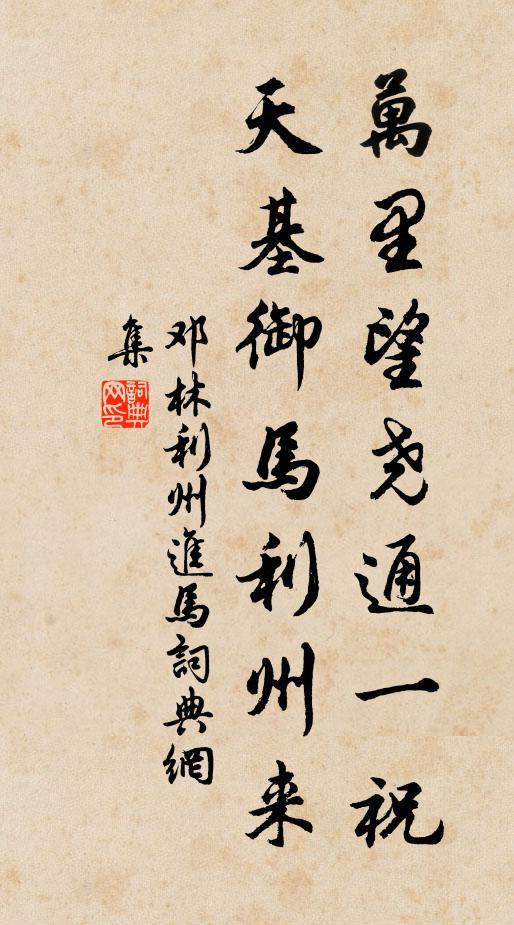 萬里望尧通一祝
天基御馬利州来
邓林利州進馬詞典網
集
詞典網印